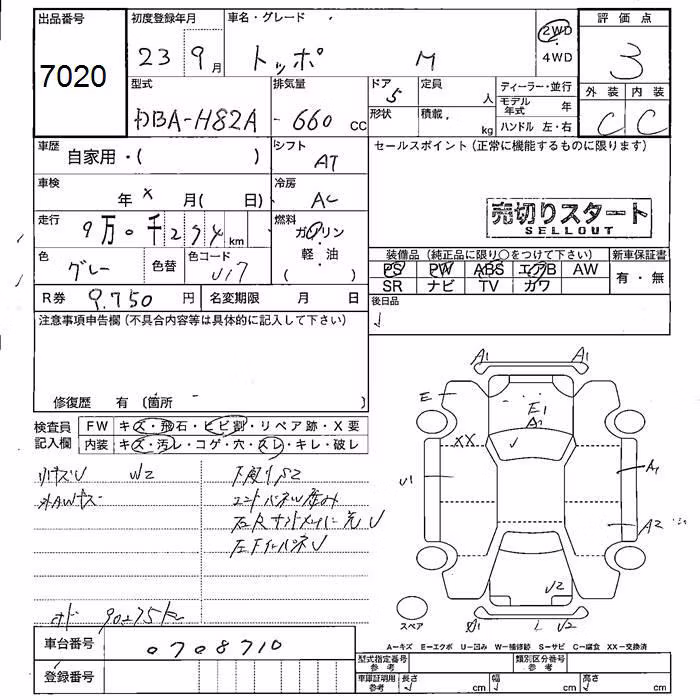 出品番号
7020
初度登録年月
23 9月
車名・グレード
トッポ M
2WD
4WD
評価点
3
外装 内装
C C
型式
DBA-H82A
排気量
660 cc
ドア
5
形状
定員
人
積載
kg
ディーラー・並行
モデル年式 年
ハンドル 左・右
車歴
自家用・( )
シフト
AT
セールスポイント(正常に機能するものに限ります)
車検
年 × 月( 日)
冷房
AC
売切りスタート
SELLOUT
走行
9万0千234km
燃料
ガソリン
軽・油
( )
色
グレー
色替
色コード
U17
装備品(純正品に限り○をつけて下さい)
PS PW ABS エアB AW
SR ナビ TV カワ
新車保証書
有・無
R券 9.750円
名変期限 月 日
後日品
注意事項申告欄(不具合内容等は具体的に記入して下さい)
修復歴 有(箇所 )
検査員記入欄
FW キズ・飛石・ヒビ割・リペア跡・X要
内装 キズ・汚レ・コゲ・穴・スレ・キレ・破レ
W2
下廻りS2
A1 A1
E
E1
A1
XX
U1
A1
A2
U2
L U2
スペア
A−キズ E−エクボ U−凹み W−補修跡 S−サビ C−腐食 XX−交換済
車台番号
0708710
登録番号
型式指定番号
参考
類別区分番号
参考
車庫証明用
参考
長さ cm
幅 cm
高さ cm